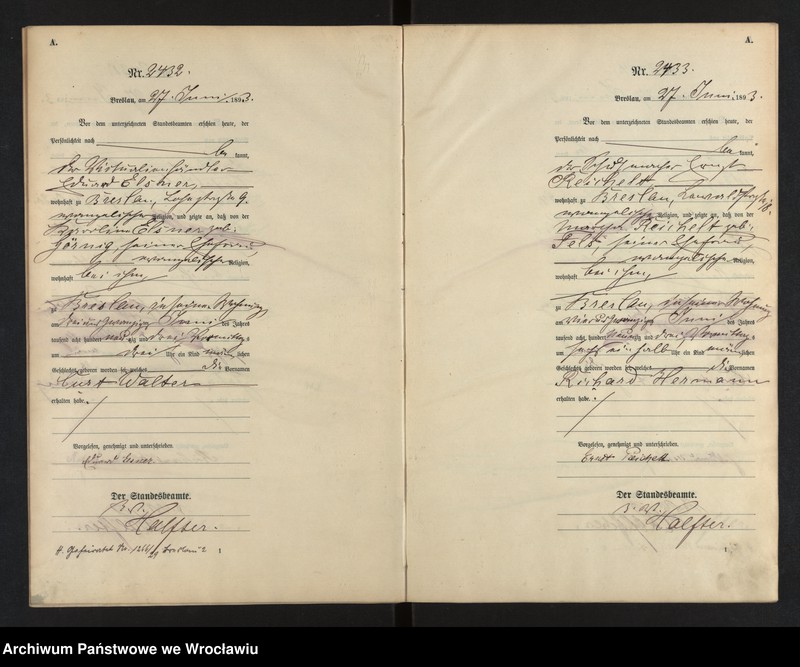 A.
Nr. 2432.
Breslau, am 27. Juni 1893.
Vor dem unterzeichneten Standesbeamten erschien heute, der
Persönlichkeit nach
be kannt,
der Victualienhändler
Eduard Elsner,
wohnhaft zu Breslau, Lohestraße 9,
evangelischer Religion, und zeigte an, daß von der
Karoline Elsner geb.
Görnig, seiner Ehefrau,
evangelischer Religion,
wohnhaft bei ihm,
zu Breslau, in seiner Wohnung
am dreiundzwanzigsten Juni des Jahres
tausend acht hundert neunzig und drei Vormittags
um drei Uhr ein Kind männlichen
Geschlechts geboren worden sei, welches die Vornamen
Curt Walter
erhalten habe.
Vorgelesen, genehmigt und unterschrieben.
Eduard Elsner
Der Standesbeamte.
J. V.
Halfter.
H. Geheiratet Nr. Breslau 2
1
A.
Nr. 2433.
Breslau, am 27. Juni 1893.
Vor dem unterzeichneten Standesbeamten erschien heute, der
Persönlichkeit nach
be kannt,
der Schuhmacher Ernst
Reichelt
wohnhaft zu Breslau,
evangelischer Religion, und zeigte an, daß von der
Reichelt geb.
seiner Ehefrau,
evangelischer Religion,
wohnhaft bei ihm,
zu Breslau, in seiner Wohnung
am vierundzwanzigsten Juni des Jahres
tausend acht hundert neunzig und drei Vormittags
um sechs ein halb Uhr ein Kind männlichen
Geschlechts geboren worden sei, welches die Vornamen
Richard Hermann
erhalten habe.
Vorgelesen, genehmigt und unterschrieben.
Ernst Reichelt
Der Standesbeamte.
J. V.
Halfter.
1
Archiwum Państwowe we Wrocławiu